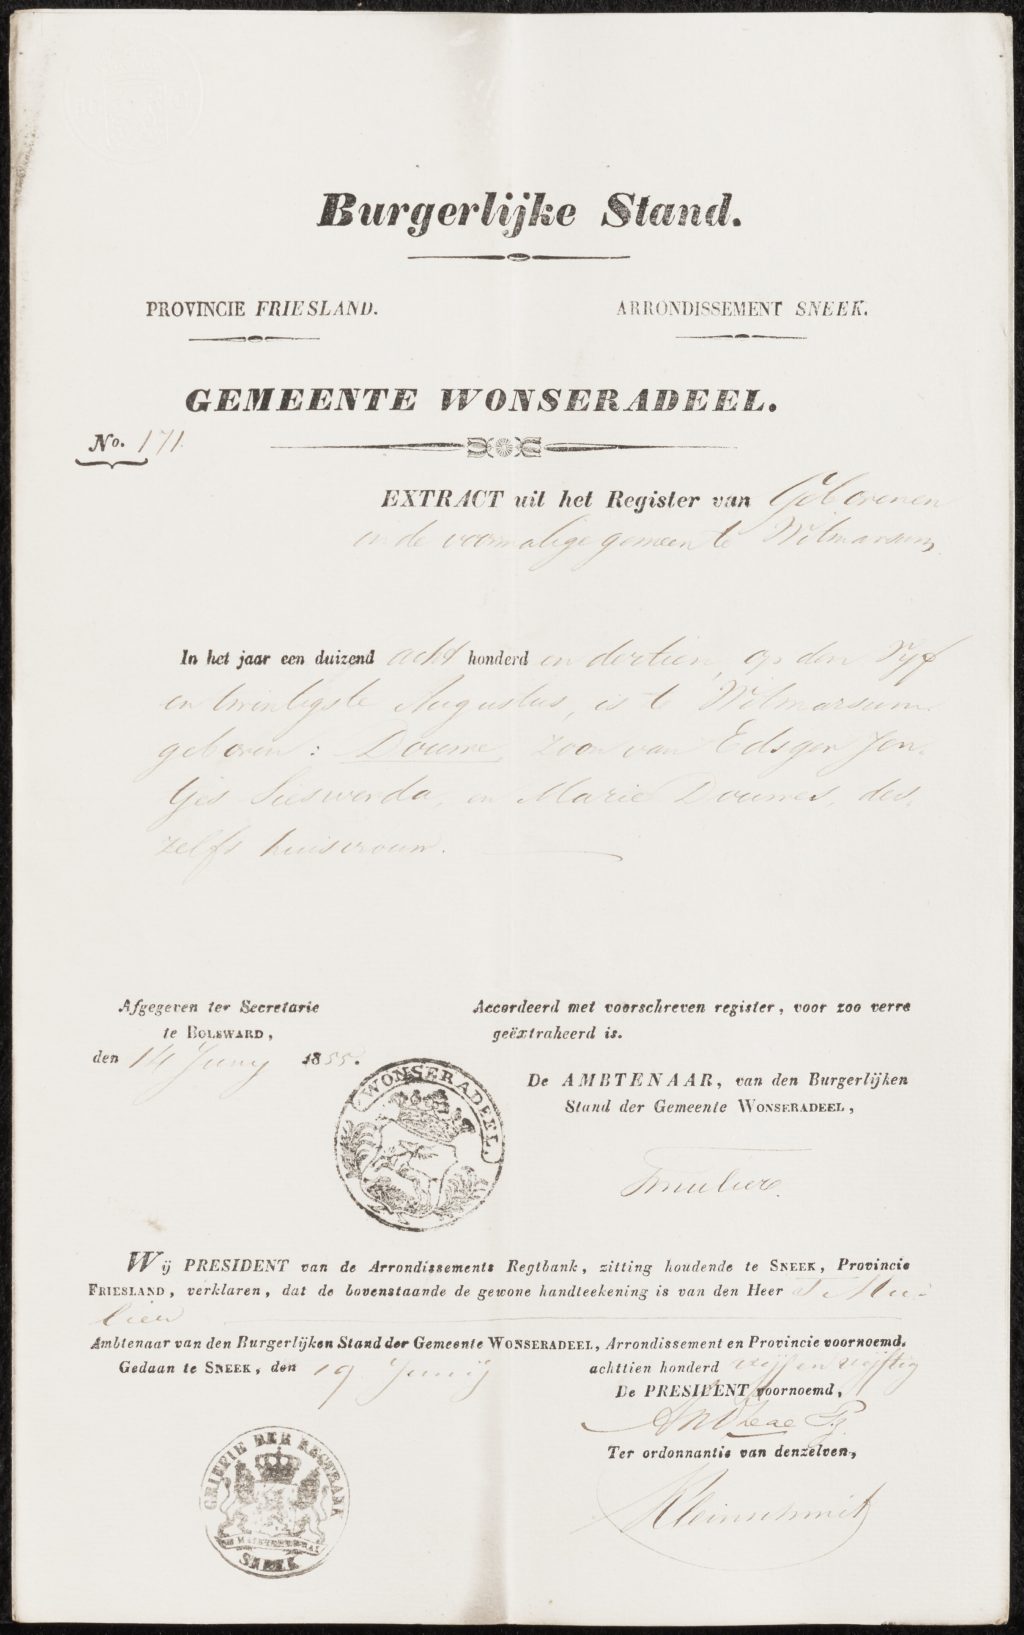 Burgerlijke Stand.
PROVINCIE FRIESLAND.
ARRONDISSEMENT SNEEK.
GEMEENTE WONSERADEEL.
No. 171.
EXTRACT uit het Register van Geborenen
in de voormalige gemeente Witmarsum
In het jaar een duizend acht honderd en dertien, op den Vyf
en twintigste Augustus, is te Witmarsum
geboren: Douwe, zoon van Edsger Jen-
tjes Sieswerda, en Marie Douwes, des-
zelfs huisvrouw.
Afgegeven ter Secretarie
te BOLSWARD,
den 14 Juny 1855.
Accordeerd met voorschreven register, voor zoo verre
geëxtraheerd is.
De AMBTENAAR, van den Burgerlijken
Stand der Gemeente WONSERADEEL,
WONSERADEEL.
Wij PRESIDENT van de Arrondissements Regtbank, zitting houdende te SNEEK, Provincie
FRIESLAND, verklaren, dat de bovenstaande de gewone handteekening is van den Heer T. Mu-
lier
Ambtenaar van den Burgerlijken Stand der Gemeente WONSERADEEL, Arrondissement en Provincie voornoemd.
Gedaan te SNEEK, den 19 Junij achttien honderd vijf en vijftig
De PRESIDENT voornoemd,
Ter ordonnantie van denzelven,
Kleinschmit
GRIFFIE DER REGTBANK
SNEEK